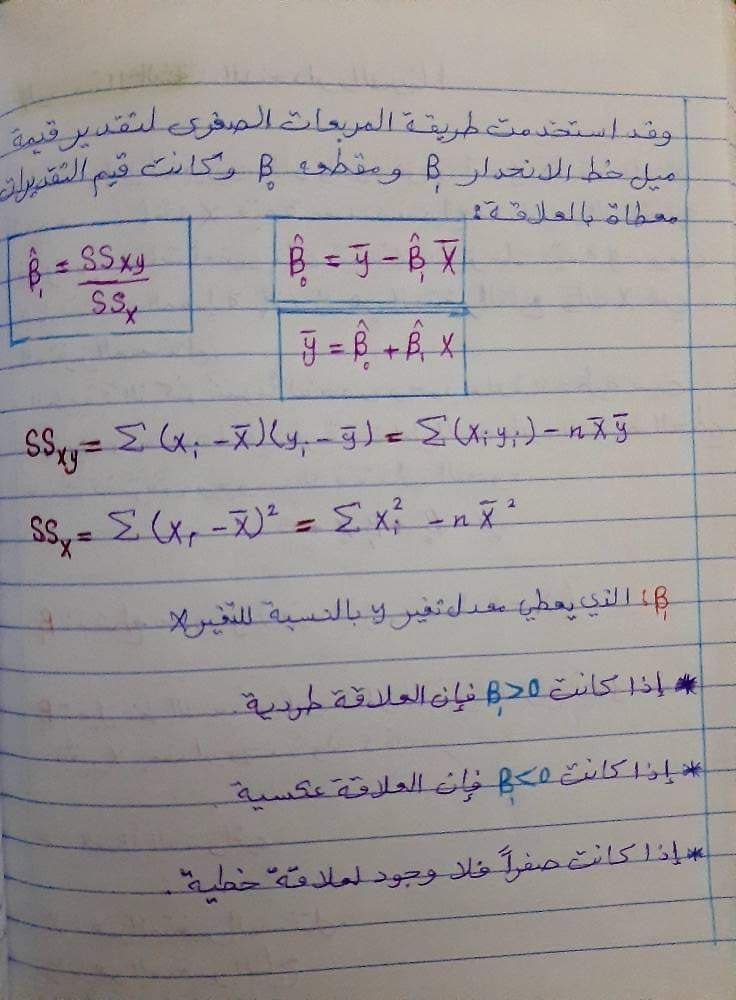 وقد استخدمت طريقة المربعات الصغرى لتقدير قيمة
ميل خط الانحدار β₁ ومقطعه β₀ وكانت قيم التقديرات
معطاة بالعلاقة:
β̂₁ = SSxy / SSx
β̂₀ = ȳ − β̂₁ X̄
ȳ = β̂₀ + β̂₁ X
SSxy = Σ (xᵢ − x̄)(yᵢ − ȳ) = Σ(xᵢyᵢ) − n x̄ ȳ
SSx = Σ (xᵢ − x̄)² = Σ xᵢ² − n x̄²
β₁: الذي يعطي معدل تغير y بالنسبة للتغير x
* إذا كانت β₁>0 فإن العلاقة طردية.
* إذا كانت β₁<0 فإن العلاقة عكسية
* إذا كانت صفراً فلا وجود لعلاقة خطية.